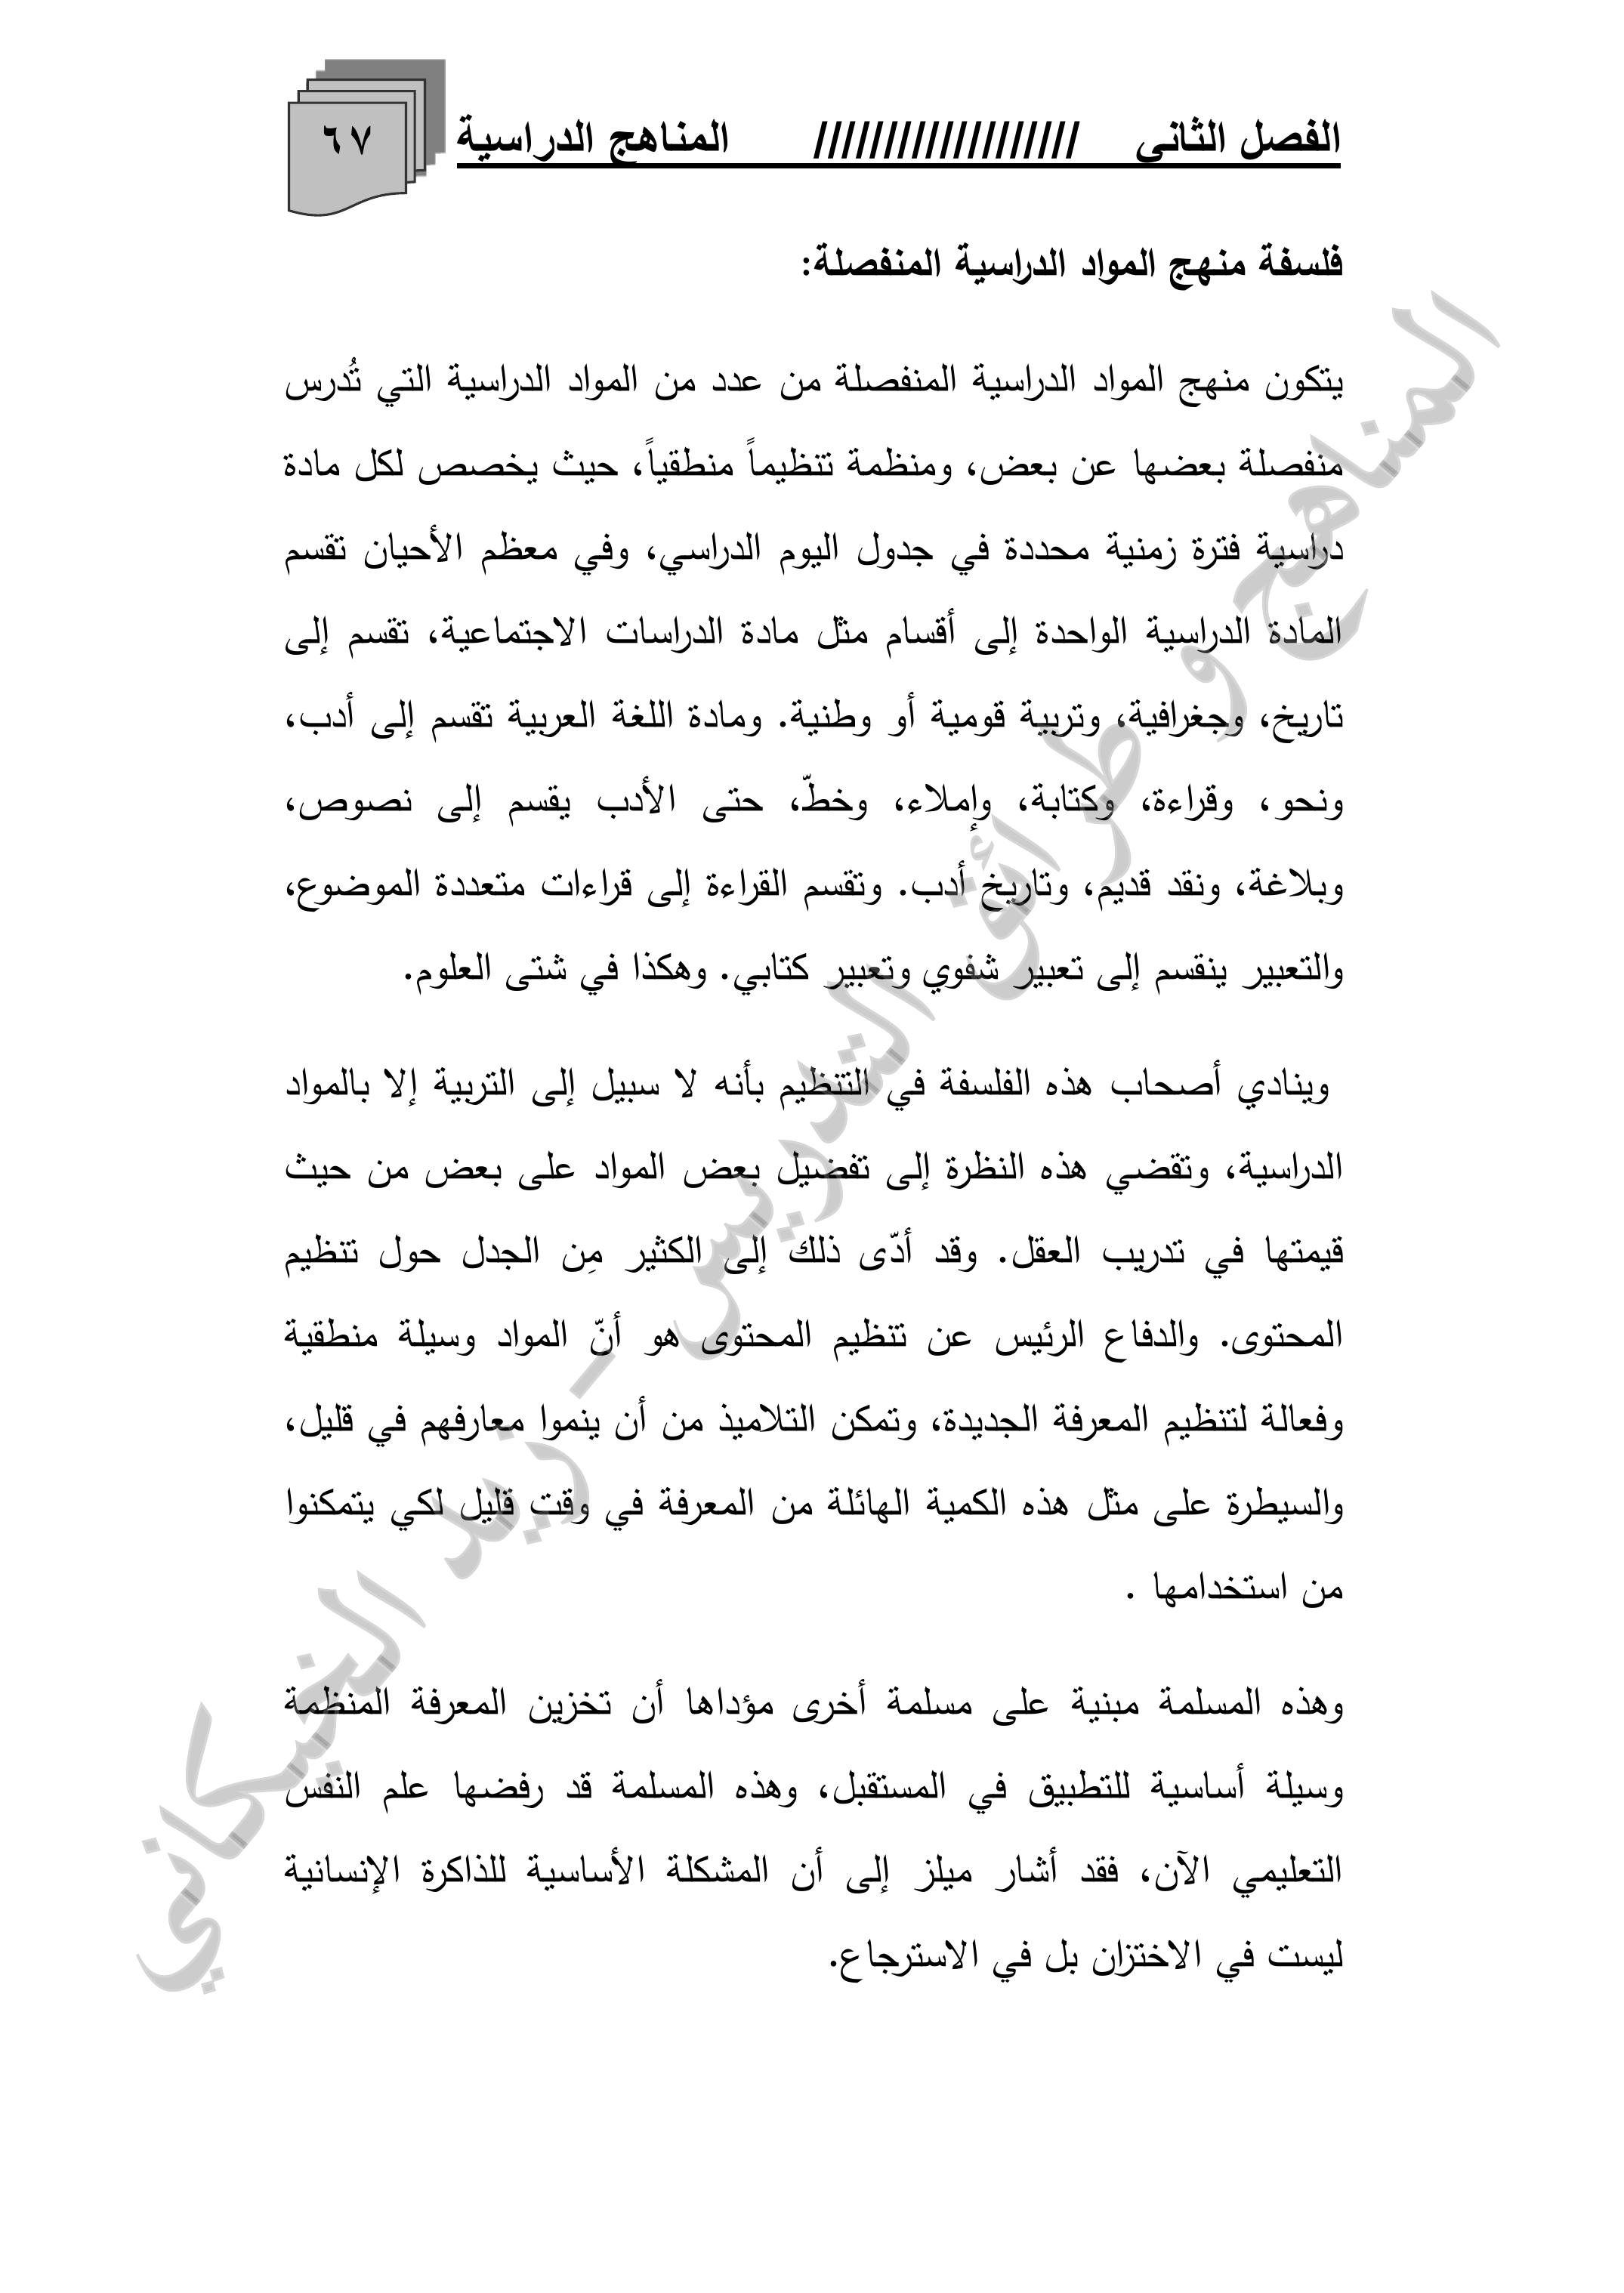 الفصل الثاني /////////////////// المناهج الدراسية ٦٧
فلسفة منهج المواد الدراسية المنفصلة:
يتكون منهج المواد الدراسية المنفصلة من عدد من المواد الدراسية التي تُدرس
منفصلة بعضها عن بعض، ومنظمة تنظيماً منطقياً، حيث يخصص لكل مادة
دراسية فترة زمنية محددة في جدول اليوم الدراسي، وفي معظم الأحيان تقسم
المادة الدراسية الواحدة إلى أقسام مثل مادة الدراسات الاجتماعية، تقسم إلى
تاريخ، وجغرافية، وتربية قومية أو وطنية. ومادة اللغة العربية تقسم إلى أدب،
ونحو، وقراءة، وكتابة، وإملاء، وخطّ، حتى الأدب يقسم إلى نصوص،
وبلاغة، ونقد قديم، وتاريخ أدب. وتقسم القراءة إلى قراءات متعددة الموضوع،
والتعبير ينقسم إلى تعبير شفوي وتعبير كتابي. وهكذا في شتى العلوم.
وينادي أصحاب هذه الفلسفة في التنظيم بأنه لا سبيل إلى التربية إلا بالمواد
الدراسية، وتقضي هذه النظرة إلى تفضيل بعض المواد على بعض من حيث
قيمتها في تدريب العقل. وقد أدّى ذلك إلى الكثير مِن الجدل حول تنظيم
المحتوى. والدفاع الرئيس عن تنظيم المحتوى هو أنّ المواد وسيلة منطقية
وفعالة لتنظيم المعرفة الجديدة، وتمكن التلاميذ من أن ينموا معارفهم في قليل،
والسيطرة على مثل هذه الكمية الهائلة من المعرفة في وقت قليل لكي يتمكنوا
من استخدامها .
وهذه المسلمة مبنية على مسلمة أخرى مؤداها أن تخزين المعرفة المنظمة
وسيلة أساسية للتطبيق في المستقبل، وهذه المسلمة قد رفضها علم النفس
التعليمي الآن، فقد أشار ميلز إلى أن المشكلة الأساسية للذاكرة الإنسانية
ليست في الاختزان بل في الاسترجاع.
المناهج و طرائق التدريس – زيد الخيكاني